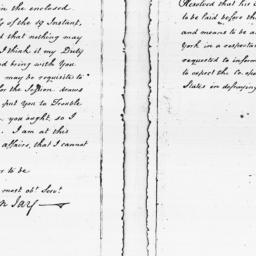 in the enclosed
of the 19 Instant,
d that nothing may
I think it my Duty
d bring with You
may be requisite to
for the Session draws
put You to Trouble
you ought, so I
. I am at this
affairs, that I cannot
to be
most obt. Servt.
n Jay
Resolved that his
to be laid before th
and means to be a
York in a respectab
requested to inform
to expect the Co. ope
States in defraying